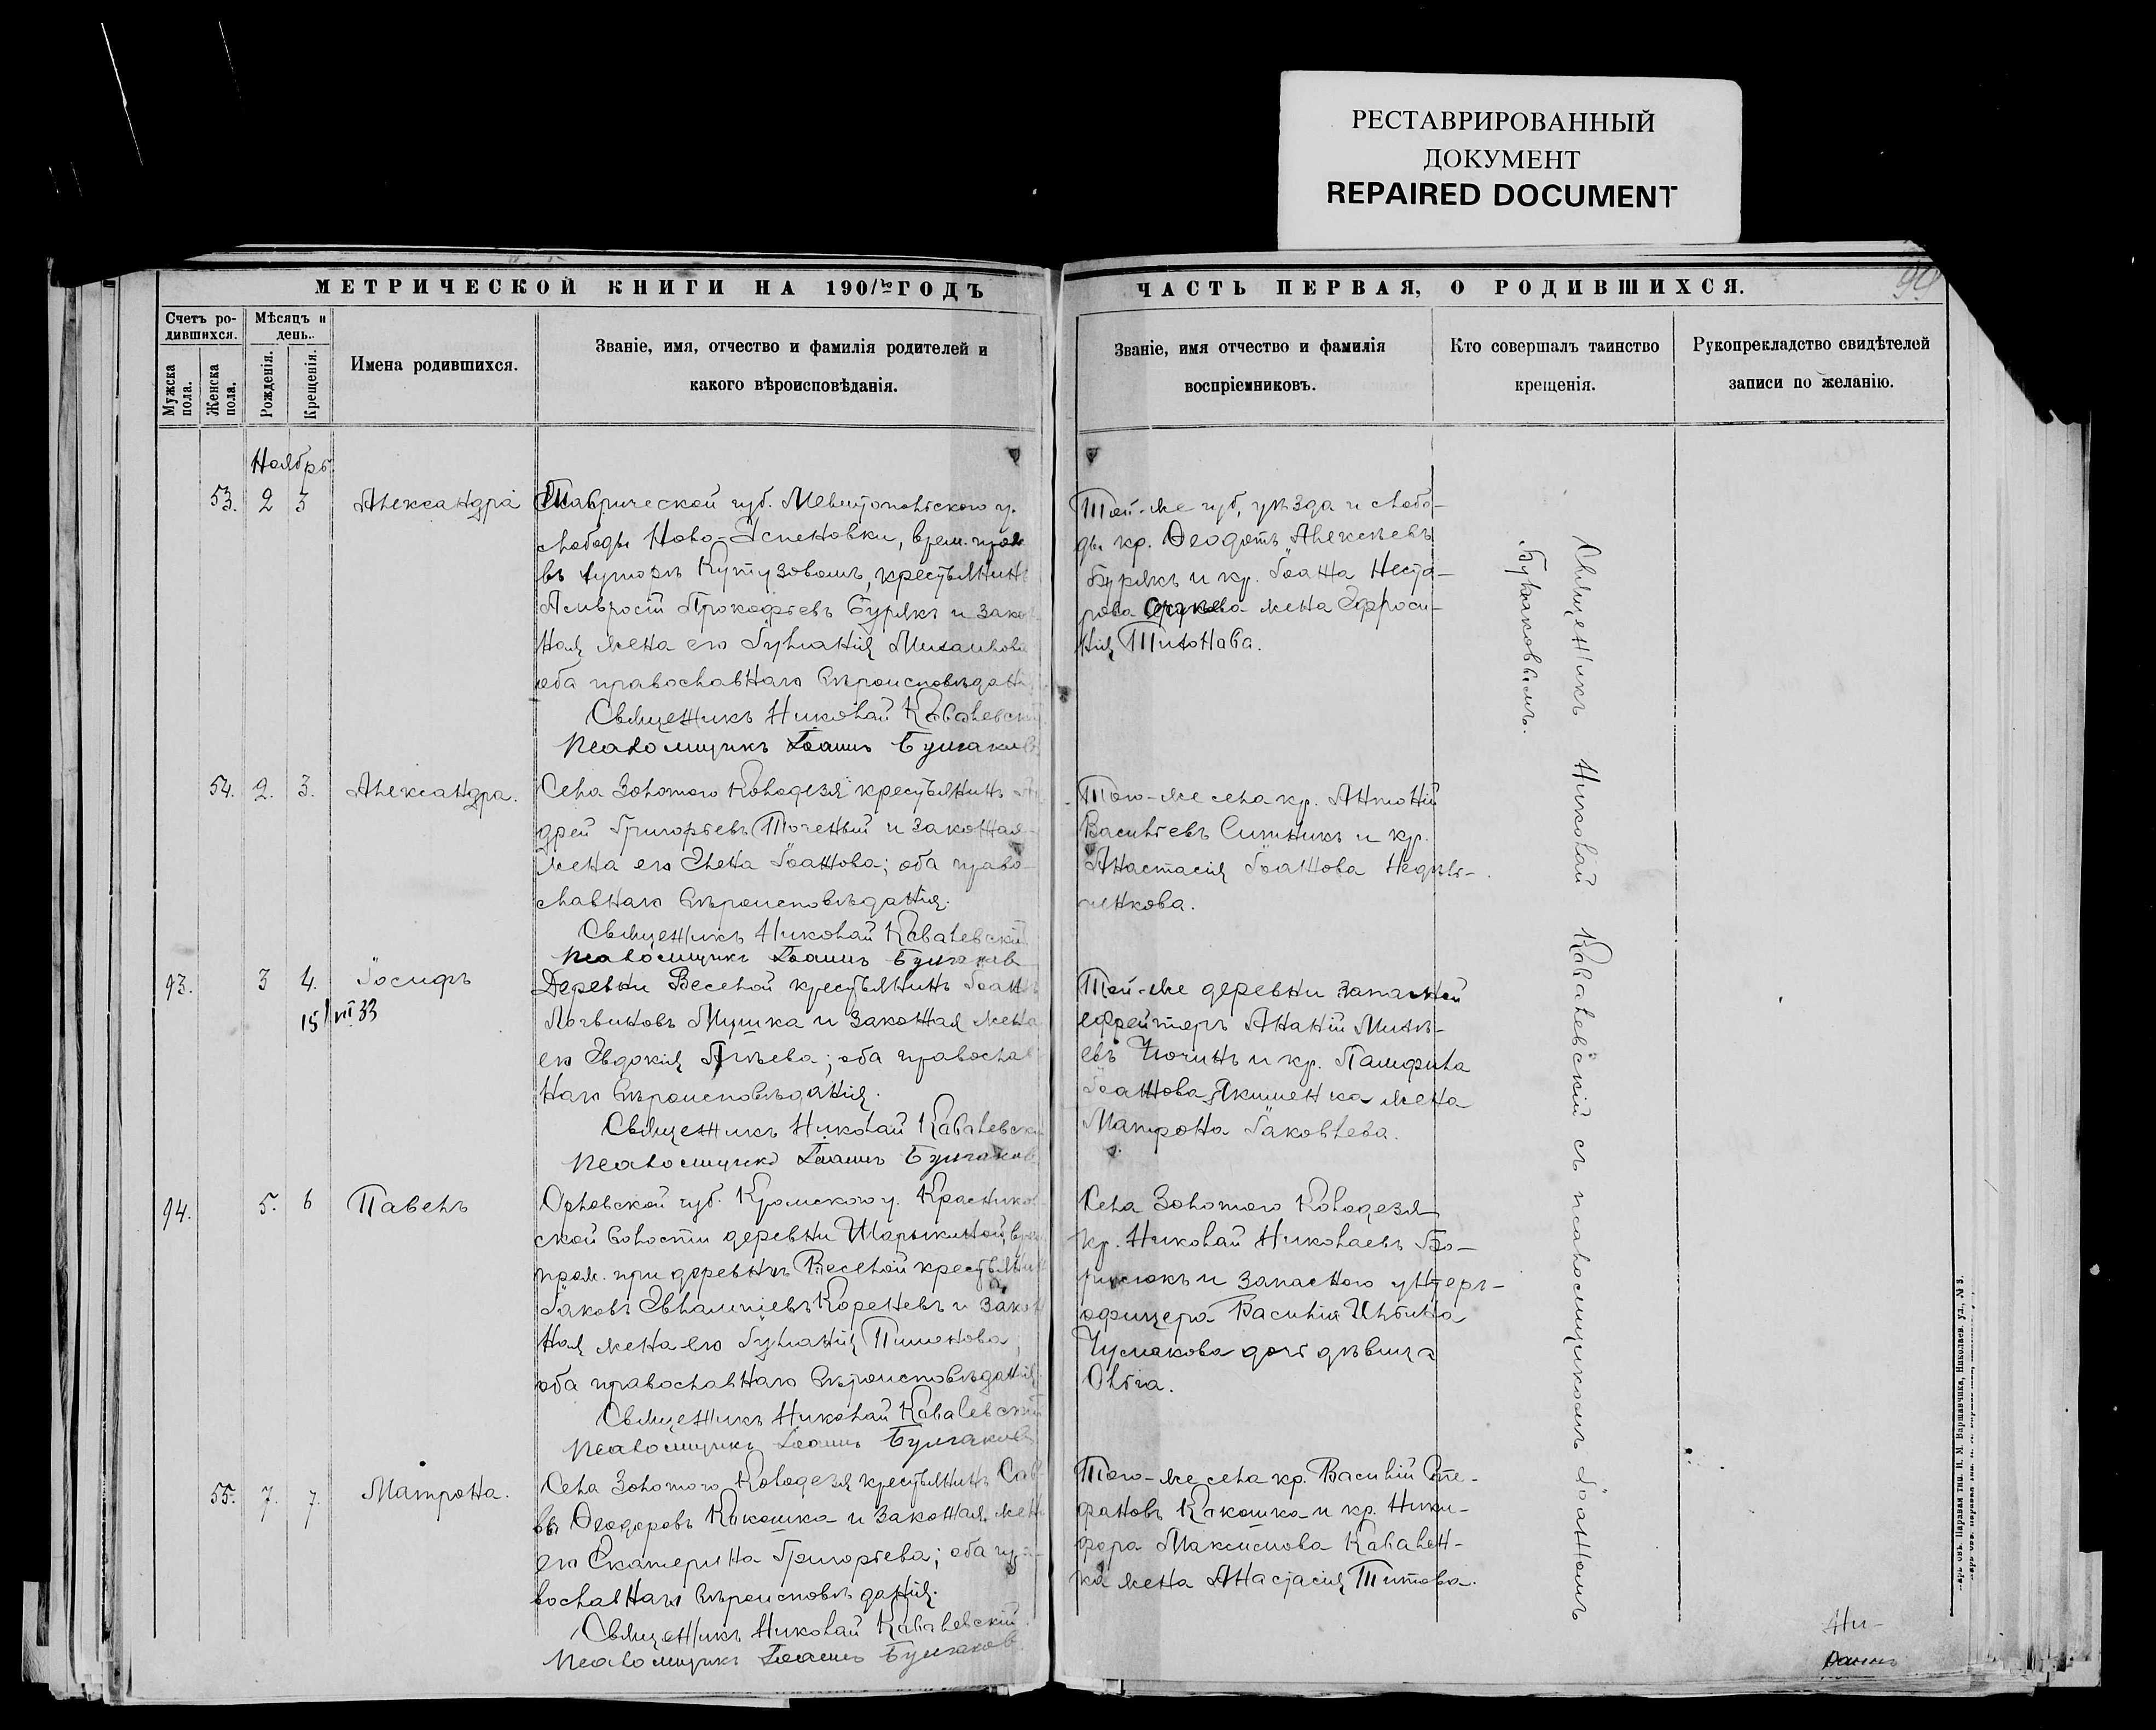 РЕСТАВРИРОВАННЫЙ
ДОКУМЕНТ
REPAIRED DOCUMENT
МЕТРИЧЕСКОЙ КНИГИ НА 190/ ГОДЪ
Счетъ ро-
дившихся.
Мужска
пола.
Женска
пола.
Мѣсяцъ и
день.
Рожденія.
Крещенія.
Имена родившихся.
Званіе, имя, отчество и фамилія родителей и
какого вѣроисповѣданія.
Ноябрь
53. 2 3 Александра
Таврической губ. Мелитопольскаго у.
слободы Ново-Успеновки, врем. прож.
въ хуторѣ Кутузовомъ, крестьянинъ
Амвросій Прокофьевъ Бурякъ и закон
ная жена его Іуліанія Михаилова
оба православнаго вѣроисповѣданія
Священникъ Николай Ковалевскій
Псаломщикъ Іоаннъ Булгаковъ
54. 2. 3. Александра.
Села Золотого Колодезя крестьянинъ Ан
дрей Григорьевъ Точеный и законная
жена его Елена Іоаннова; оба право-
славнаго вѣроисповѣданія.
Священникъ Николай Ковалевскій
Псаломщикъ Іоаннъ Булгаковъ
93. 3 4. Іосифъ
15/VII 33
Деревни Веселой крестьянинъ Іоаннъ
Логвиновъ Мушка и законная жена
его Евдокія ; оба православ
наго вѣроисповѣданія.
Священникъ Николай Ковалевскій
Псаломщикъ Іоаннъ Булгаковъ
94. 5. 6 Павелъ
Орловской губ. Кромскаго у. Красников
ской волости деревни Шарыкиной, врем
прож. при деревнѣ Веселой крестьянинъ
Іаковъ Евлампіевъ Кореневъ и закон
ная жена его Іуліанія Пименова,
оба православнаго вѣроисповѣданія
Священникъ Николай Ковалевскій
Псаломщикъ Іоаннъ Булгаковъ
55. 7. 7. Матрона.
Села Золотого Колодезя крестьянинъ Сав
ва Ѳеодоровъ Кокошка и законная жена
его Екатерина Григорьева; оба пра-
вославнаго вѣроисповѣданія.
Священникъ Николай Ковалевскій
Псаломщикъ Іоаннъ Булгаковъ
ЧАСТЬ ПЕРВАЯ, О РОДИВШИХСЯ.
Званіе, имя отчество и фамилія
воспріемниковъ.
Кто совершалъ таинство
крещенія.
Рукоприкладство свидѣтелей
записи по желанію.
Той-же губ, уѣзда и слобо-
ды кр. Ѳеодотъ Алексѣевъ
Бурякъ и кр. Іоанна Несто-
рова жена Ефроси-
нія Тихонова.
Того-же села кр. Антоній
Васильевъ Ситникъ и кр.
Анастасія Іоаннова Недѣль-
ченкова.
Той-же деревни запасный
ефрейторъ Ананій Михѣ-
евъ и кр. Памфила
Іоаннова Якименка жена
Матрона Іаковлева.
Села Золотого Колодезя
кр. Николай Николаевъ Бо-
рисюкъ и запасного унтеръ-
офицера Василія Ильина
Чумакова дочь дѣвица
Ольга.
Того-же села кр. Василій Сте-
фановъ Кокошка и кр. Ники-
фора Максимова Ковален-
ка жена Анастасія Титова.
Священникъ Николай Ковалевскій съ псаломщикомъ Іоанномъ
Булгаковымъ.